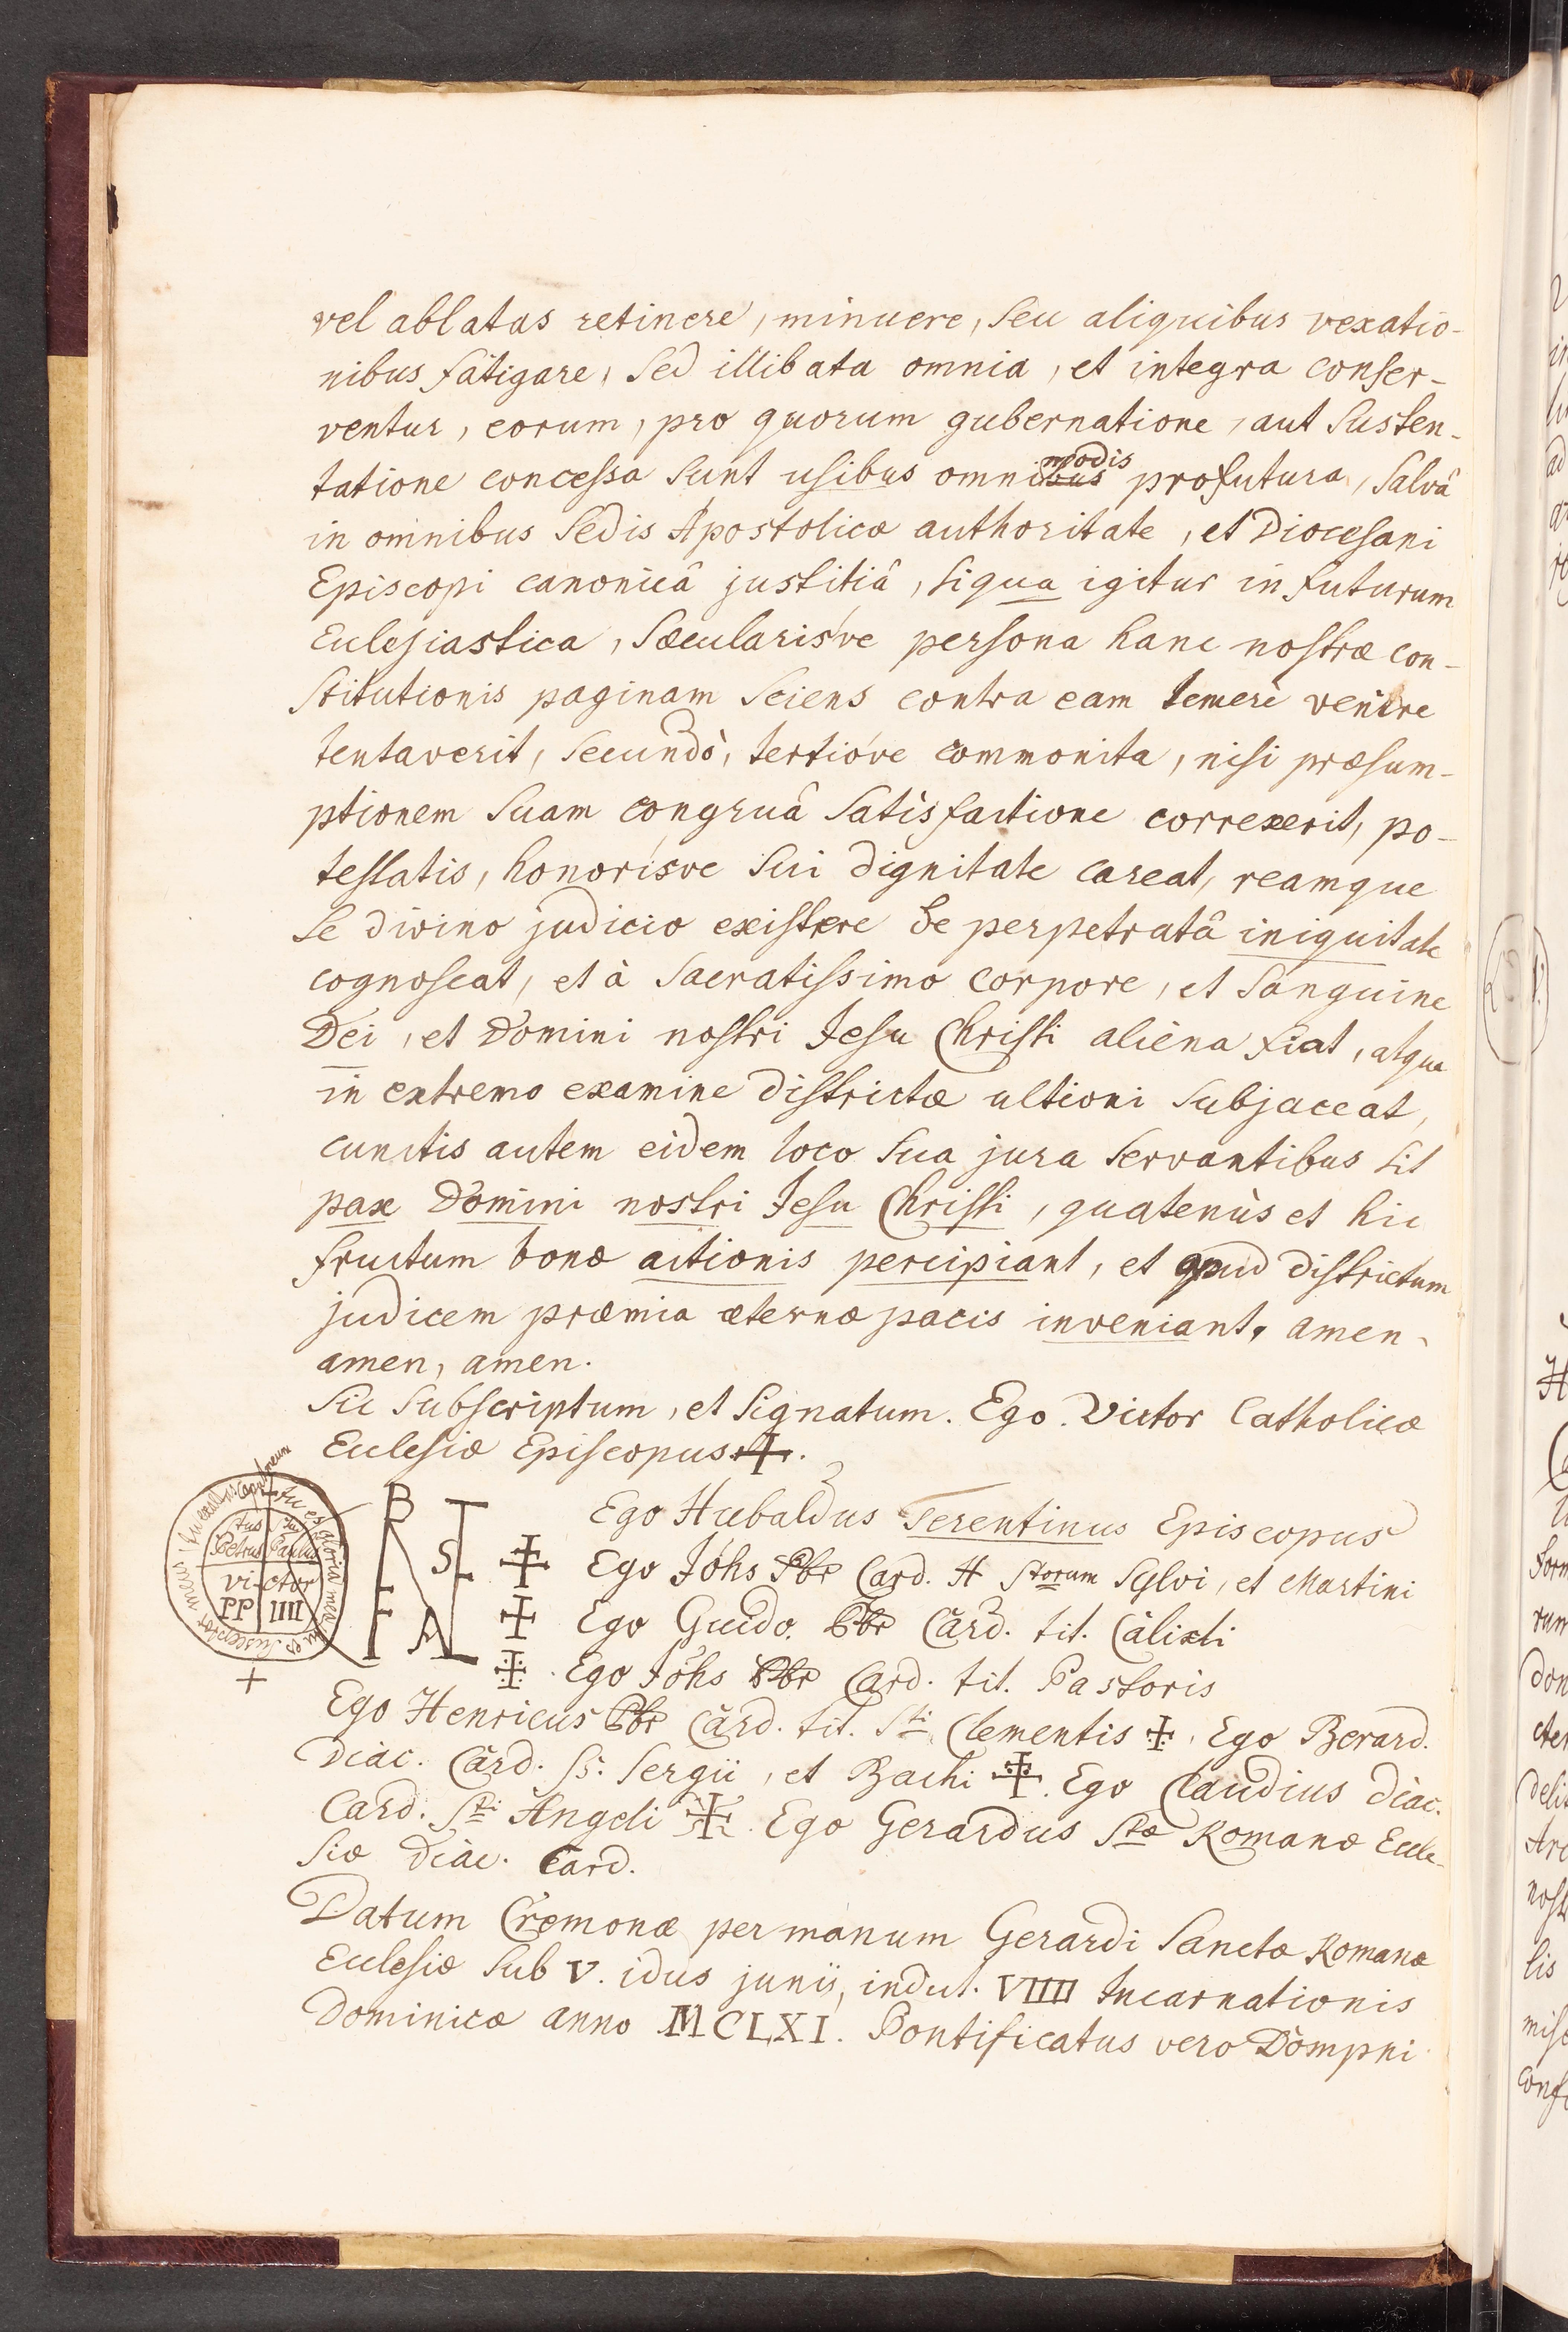 vel ablatas retinere, minuere, seu aliquibus vexatio-
nibus fatigare, sed illibata omnia, et integra conser-
ventur, eorum, pro quorum gubernatione, aut susten-
tatione concessa sunt usibus omnibus modis profutura, salvâ
in omnibus sedis Apostolicæ authoritate, et Diocesani
Episcopi canonicâ justitiâ, siqua igitur in futurum
Ecclesiastica, sæcularisve persona hanc nostræ con-
stitutionis paginam sciens contra eam temerè venire
tentaverit, secundò, tertióve commonita, nisi præsum-
ptionem suam congruâ satisfactione correxerit, po-
testatis, honorisve sui dignitate careat, reamque
se divino judicio existere de perpetratâ iniquitate
cognoscat, et à sacratissimo corpore, et sanguine
Dei, et Domini nostri Jesu Christi aliena fiat, atque
in extremo examine districtæ ultioni subjaceat,
cunctis autem eidem loco sua jura servantibus sit
pax Domini nostri Jesu Christi, quatenùs et hic
fructum bonæ actionis percipiant, et apud districtum
judicem præmia æternæ pacis inveniant, amen,
amen, amen.
Sic subscriptum, et signatum. Ego. Victor Catholicæ
Ecclesiæ Episcopus ✠.
tu es gloria mea, tu es susceptor meus, tu exaltas caput meum
Stus Petrus Paulus
vi-ctor
PP IIII
Ego Hubaldus Ferentinus Episcopus
✠ Ego Jóhs Pbr Card. tt Storum Sylvi, et Martini
✠ Ego Guido. Pbr Card. tit. Calixti
✠ Ego Jóhs Pbr Card. tit. Pastoris
Ego Henricus Pbr Card. tit. Sti Clementis ✠. Ego Berard.
Diac. Card. SS. Sergii, et Bachi ✠. Ego Claudius Diac.
Card. Sti Angeli ✠. Ego Gerardus Stæ Romanæ Eccle-
siæ Diac. Card.
Datum Cremonæ per manum Gerardi Sanctæ Romanæ
Ecclesiæ sub V. idus junii, indict. VIIII Incarnationis
Dominicæ anno MCLXI. Pontificatus vero Dompni